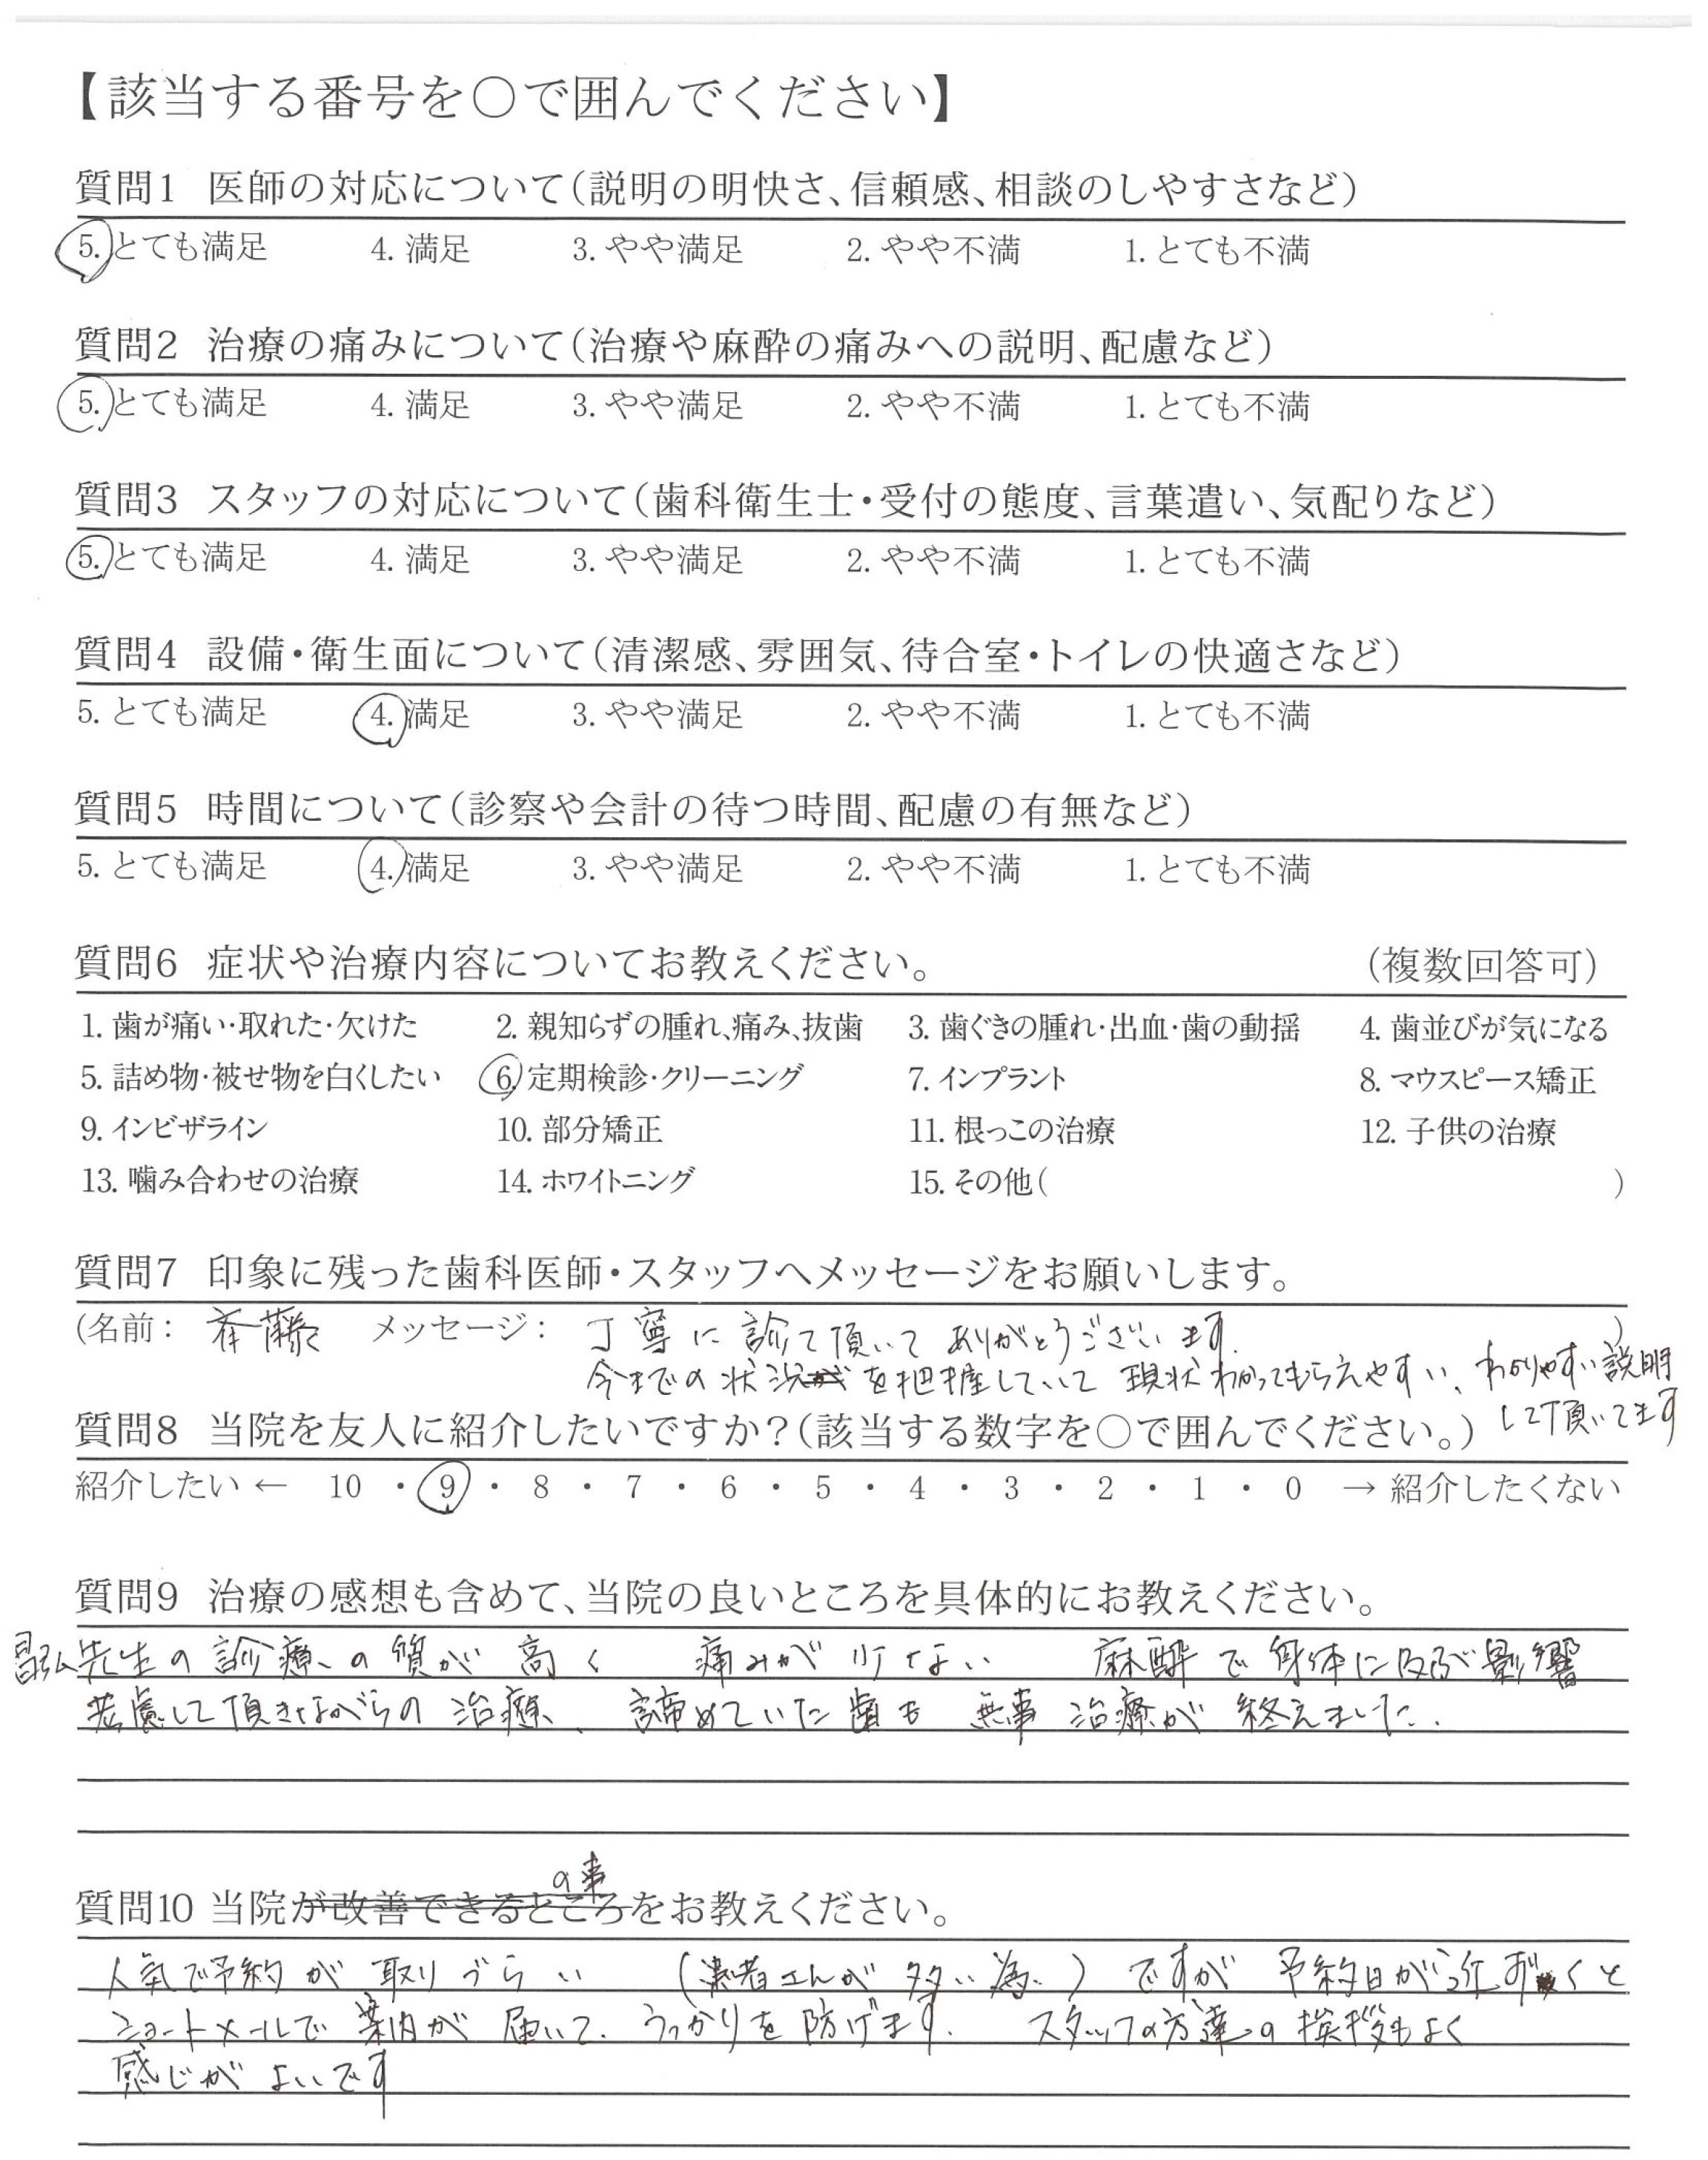 【該当する番号を○で囲んでください】
質問1 医師の対応について(説明の明快さ、信頼感、相談のしやすさなど)
5. とても満足 4. 満足 3. やや満足 2. やや不満 1. とても不満
質問2 治療の痛みについて(治療や麻酔の痛みへの説明、配慮など)
5. とても満足 4. 満足 3. やや満足 2. やや不満 1. とても不満
質問3 スタッフの対応について(歯科衛生士・受付の態度、言葉遣い、気配りなど)
5. とても満足 4. 満足 3. やや満足 2. やや不満 1. とても不満
質問4 設備・衛生面について(清潔感、雰囲気、待合室・トイレの快適さなど)
5. とても満足 4. 満足 3. やや満足 2. やや不満 1. とても不満
質問5 時間について(診察や会計の待つ時間、配慮の有無など)
5. とても満足 4. 満足 3. やや満足 2. やや不満 1. とても不満
質問6 症状や治療内容についてお教えください。 (複数回答可)
1. 歯が痛い・取れた・欠けた 2. 親知らずの腫れ、痛み、抜歯 3. 歯ぐきの腫れ・出血・歯の動揺 4. 歯並びが気になる
5. 詰め物・被せ物を白くしたい 6. 定期検診・クリーニング 7. インプラント 8. マウスピース矯正
9. インビザライン 10. 部分矯正 11. 根っこの治療 12. 子供の治療
13. 噛み合わせの治療 14. ホワイトニング 15. その他( )
質問7 印象に残った歯科医師・スタッフへメッセージをお願いします。
(名前: 斉藤 メッセージ: 丁寧に診て頂いてありがとうございます。 )
今までの状況を把握していて 現状わかってもらえやすい、わかりやすい説明
して頂いてます
質問8 当院を友人に紹介したいですか?(該当する数字を○で囲んでください。)
紹介したい ← 10 ・ 9 ・ 8 ・ 7 ・ 6 ・ 5 ・ 4 ・ 3 ・ 2 ・ 1 ・ 0 → 紹介したくない
質問9 治療の感想も含めて、当院の良いところを具体的にお教えください。
昌弘先生の診療の質が高く 痛みが少ない 麻酔で身体に及ぶ影響
考慮して頂きながらの治療、諦めていた歯も 無事 治療が終えました。
の事
質問10 当院が改善できるところをお教えください。
人気で予約が取りづらい (患者さんが多い為) ですが 予約日が近づくと
ショートメールで案内が届いて、うっかりを防げます。 スタッフの方達の挨拶もよく
感じがよいです